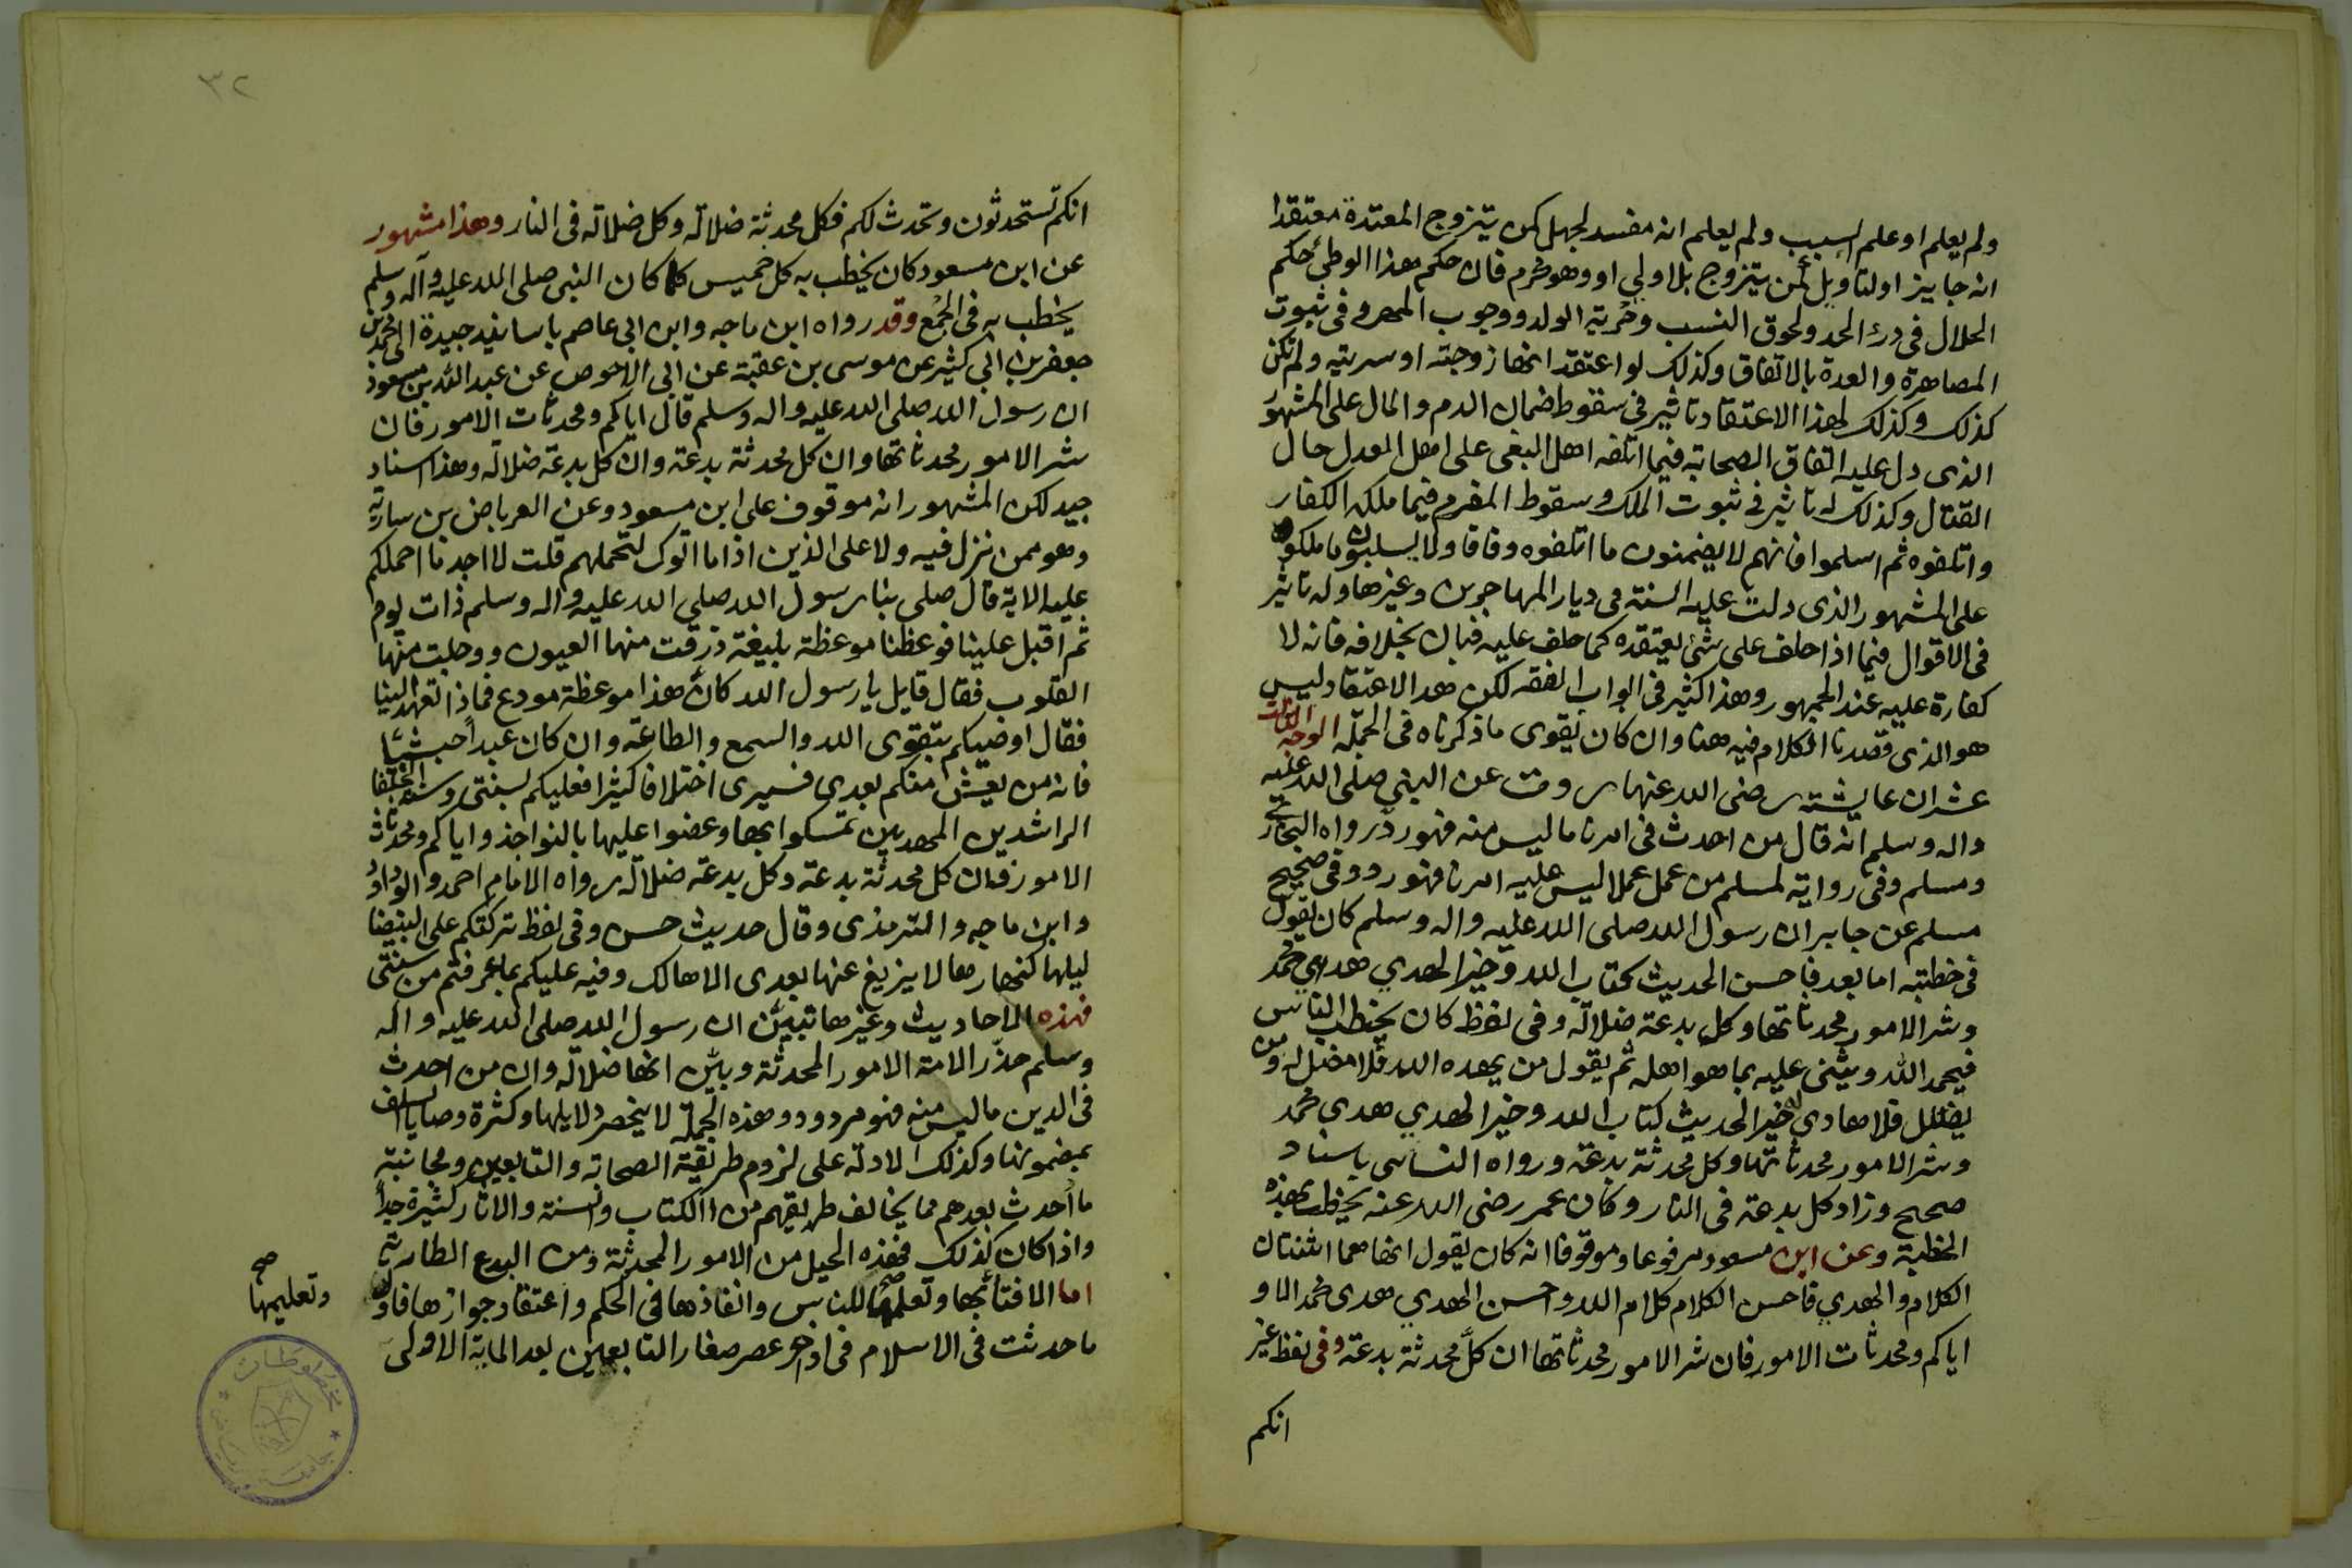 ولم يعلم او علم السبب ولم يعلم انه مفسد لجهل كمن يتزوج المعتدة معتقدا
انه جايز او لتاويل كمن يتزوج بلا ولي او وهو محرم فان حكم هذا الوطئ حكم
الحلال في درء الحد ولحوق النسب وحرية الولد ووجوب المهر وفي ثبوت
المصاهرة والعدة بالاتفاق وكذلك لو اعتقد انها زوجته او سريته ولم تكن
كذلك وكذلك لهذا الاعتقاد تاثير في سقوط ضمان الدم والمال على المشهور
الذى دل عليه اتفاق الصحابة فيما اتلفه اهل البغى على اهل العدل حال
القتال وكذلك له تاثير في ثبوت الملك وسقوط المغرم فيما ملكه الكفار
واتلفوه ثم اسلموا فانهم لا يضمنون ما اتلفوه وفاقا ولا يسلبون ما ملكوه
على المشهور الذى دلت عليه السنة فى ديار المهاجرين وغيرها وله تاثير
فى الاقوال فيما اذا حلف على شئ يعتقده كما حلف عليه فبان بخلافه فانه لا
كفارة عليه عند الجمهور وهذا كثير فى ابواب الفقه لكن هذا الاعتقاد ليس
هو الذى قصدنا الكلام فيه هنا وان كان يقوى ما ذكرناه فى الجملة الوجه الثالث
عشر ان عايشة رضى الله عنها روت عن النبي صلى الله عليه
واله وسلم انه قال من احدث فى امرنا ما ليس منه فهو رد رواه البخارى
ومسلم وفى رواية لمسلم من عمل عملا ليس عليه امرنا فهو رد وفى صحيح
مسلم عن جابر ان رسول الله صلى الله عليه واله وسلم كان يقول
فى خطبته اما بعد فاحسن الحديث كتاب الله وخير الهدي هدي محمد
وشر الامور محدثاتها وكل بدعة ضلالة وفى لفظ كان يخطب الناس
فيحمد الله ويثنى عليه بما هو اهله ثم يقول من يهده الله فلا مضل له ومن
يضلل فلا هادي له خير الحديث كتاب الله وخير الهدي هدي محمد
وشر الامور محدثاتها وكل محدثة بدعة ورواه النساى باسناد
صحيح وزاد كل بدعة فى النار وكان عمر رضى الله عنه يخطب بهذه
الخطبة وعن ابن مسعود مرفوعا وموقوفا انه كان يقول انما هما اثنتان
الكلام والهدي فاحسن الكلام كلام الله واحسن الهدي هدى محمد الا و
اياكم ومحدثات الامور فان شر الامور محدثاتها ان كل محدثة بدعة وفى لفظ غير
انكم
٣٢
انكم تستحدثون وتحدث لكم فكل محدثة ضلالة وكل ضلالة فى النار وهذا مشهور
عن ابن مسعود كان يخطب به كل خميس كما كان النبى صلى الله عليه وآله وسلم
يخطب به فى الجمع وقد رواه ابن ماجه وابن ابى عاصم باسانيد جيدة الى محمد بن
جعفر بن ابى كثير عن موسى بن عقبة عن ابى الاحوص عن عبد الله بن مسعود
ان رسول الله صلى الله عليه واله وسلم قال اياكم ومحدثات الامور فان
شر الامور محدثاتها وان كل محدثة بدعة وان كل بدعة ضلالة وهذا اسناد
جيد لكن المشهور انه موقوف على ابن مسعود وعن العرباض بن سارية
وهو ممن نزل فيه ولا على الذين اذا ما اتوك لتحملهم قلت لا اجد ما احملكم
عليه الاية قال صلى بنا رسول الله صلى الله عليه واله وسلم ذات يوم
ثم اقبل علينا فوعظنا موعظة بليغة ذرفت منها العيون ووجلت منها
القلوب فقال قايل يا رسول الله كأن هذا موعظة مودع فماذا تعهد الينا
فقال اوصيكم بتقوى الله والسمع والطاعة وان كان عبدا حبشيا
فانه من يعيش منكم بعدى فسيرى اختلافا كثيرا فعليكم بسنتى وسنة الخلفا
الراشدين المهديين تمسكوا بها وعضوا عليها بالنواجذ واياكم ومحدثات
الامور فان كل محدثة بدعة وكل بدعة ضلالة رواه الامام احمد وابو داود
وابن ماجه والترمذى وقال حديث حسن وفى لفظ تركتكم على البيضا
ليلها كنهارها لا يزيغ عنها بعدى الا هالك وفيه عليكم بما عرفتم من سنتى
فهذه الاحاديث وغيرها تبين ان رسول الله صلى الله عليه واله
وسلم حذر الامة الامور المحدثة وبين انها ضلالة وان من احدث
فى الدين ما ليس منه فهو مردود وهذه الجملة لا ينحصر دلايلها وكثرة وصايا السلف
بمضمونها وكذلك الادلة على لزوم طريقة الصحابة والتابعين ومجانبة
ما أحدث بعدهم مما يخالف طريقهم من الكتاب والسنة والاثار كثيرة جدا
واذا كان كذلك فهذه الحيل من الامور المحدثة ومن البدع الطارية
اما الافتا بها وتعلمها للناس وانفاذها فى الحكم واعتقاد جوازها فاول
ما حدثت فى الاسلام فى اواخر عصر صغار التابعين بعد الماية الاولى
صح
وتعليمها
مخطوطات